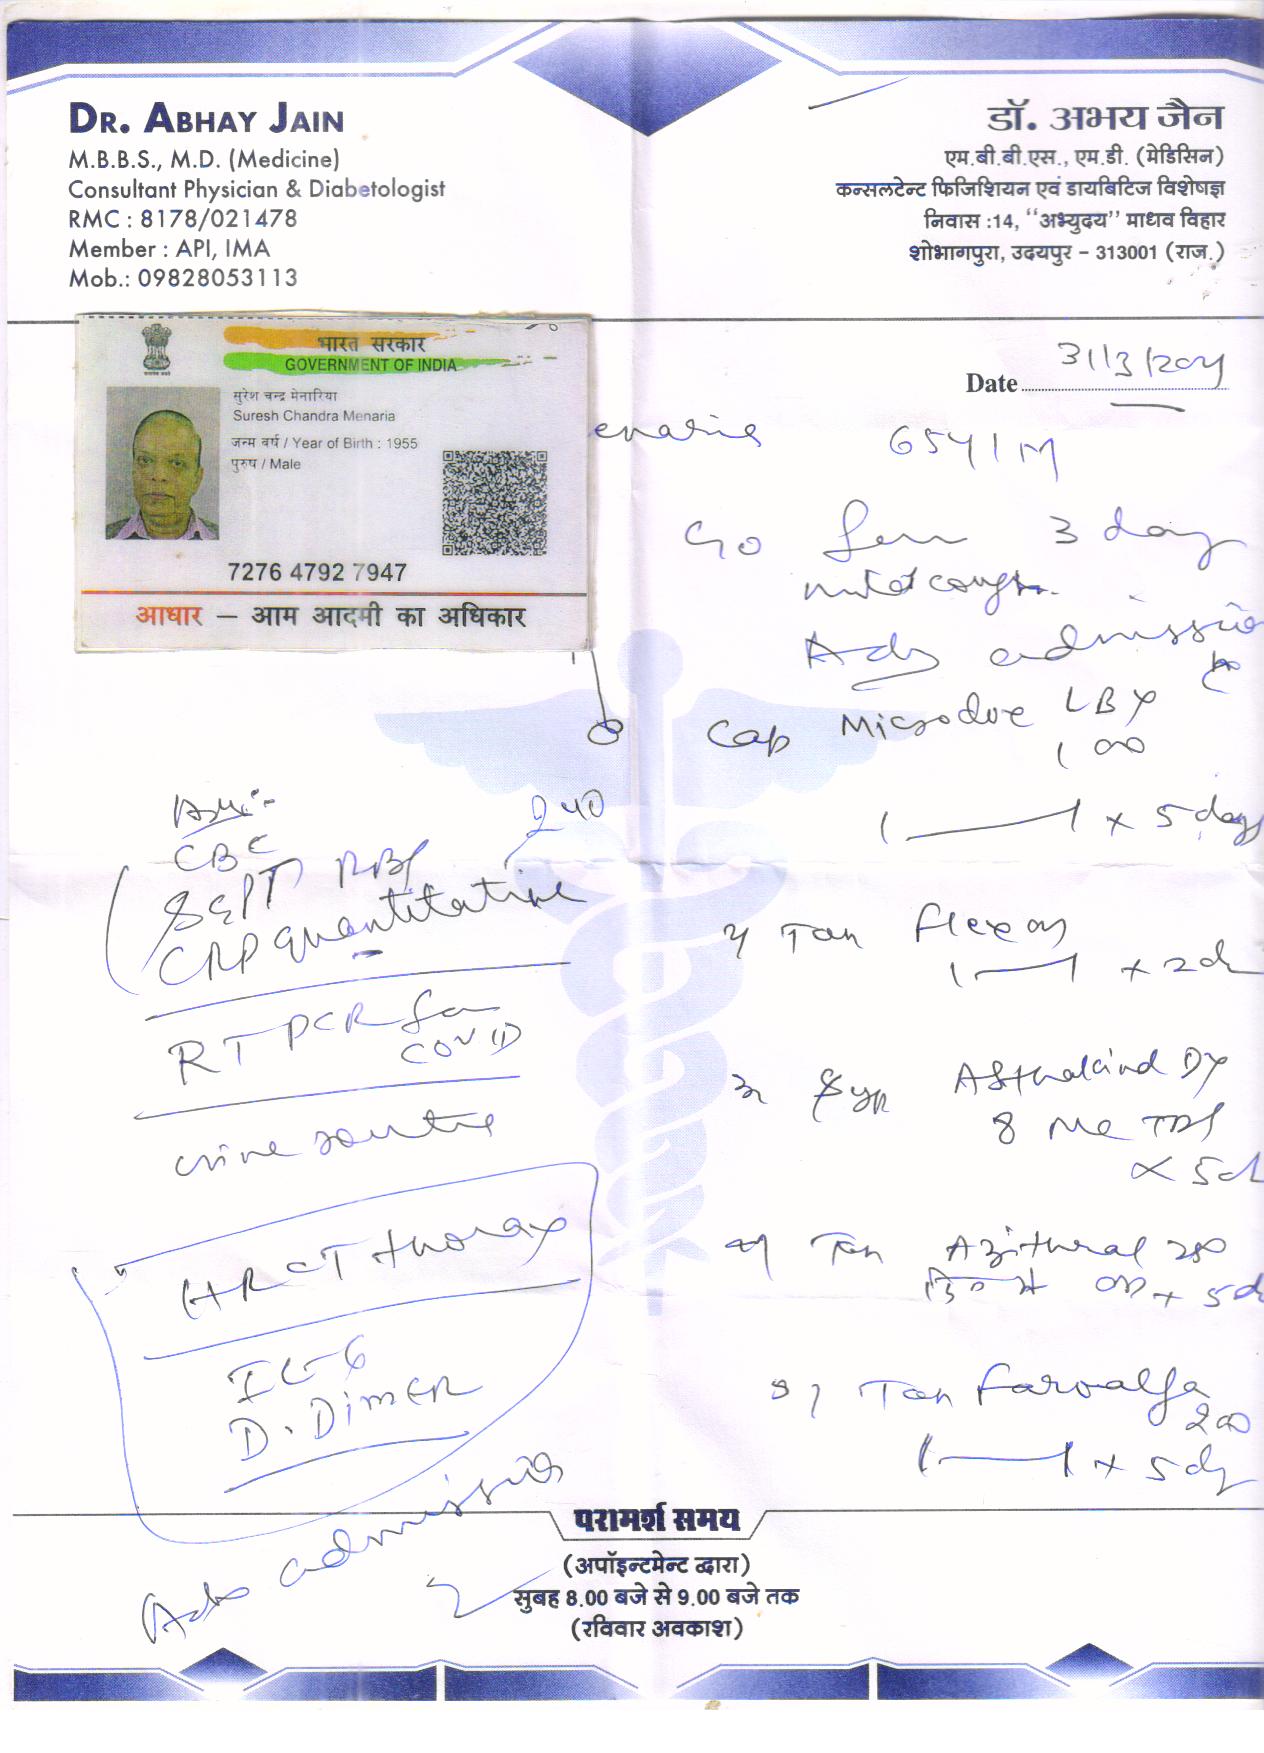 DR. ABHAY JAIN
M.B.B.S., M.D. (Medicine)
Consultant Physician & Diabetologist
RMC : 8178/021478
Member : API, IMA
Mob.: 09828053113
डॉ. अभय जैन
एम.बी.बी.एस., एम.डी. (मेडिसिन)
कन्सलटेन्ट फिजिशियन एवं डायबिटिज विशेषज्ञ
निवास :14, ‘‘अभ्युदय’’ माधव विहार
शोभागपुरा, उदयपुर – 313001 (राज.)
भारत सरकार
GOVERNMENT OF INDIA
सुरेश चन्द्र मेनारिया
Suresh Chandra Menaria
जन्म वर्ष / Year of Birth : 1955
पुरुष / Male
7276 4792 7947
आधार – आम आदमी का अधिकार
Date 31/3/2021
enaria 65Y/M
3 day
mild cough
Adv admission
Cap Microdox LBX
100
1 — 1 x 5 days
Tab Flexon
1 — 1 x 2d
Syp Asthakind Dx
8 ml TDS
x 5d
Tab Azithral 250
OD x 5d
Tab Farvalfa
200
1 — 1 x 5 dy
Adv:-
CBC
SGPT RBS 240
CRP quantitative
RTPCR for
COVID
urine routine
HRCT thorax
IL-6
D. DimER
Adv admission
परामर्श समय
(अपॉइन्टमेन्ट द्वारा)
सुबह 8.00 बजे से 9.00 बजे तक
(रविवार अवकाश)